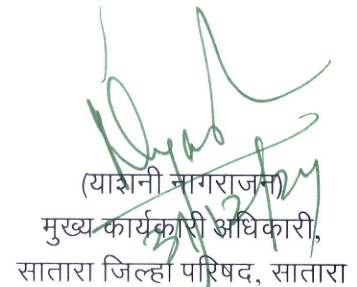 (याशनी नागराजन)
मुख्य कार्यकारी अधिकारी,
सातारा जिल्हा परिषद, सातारा